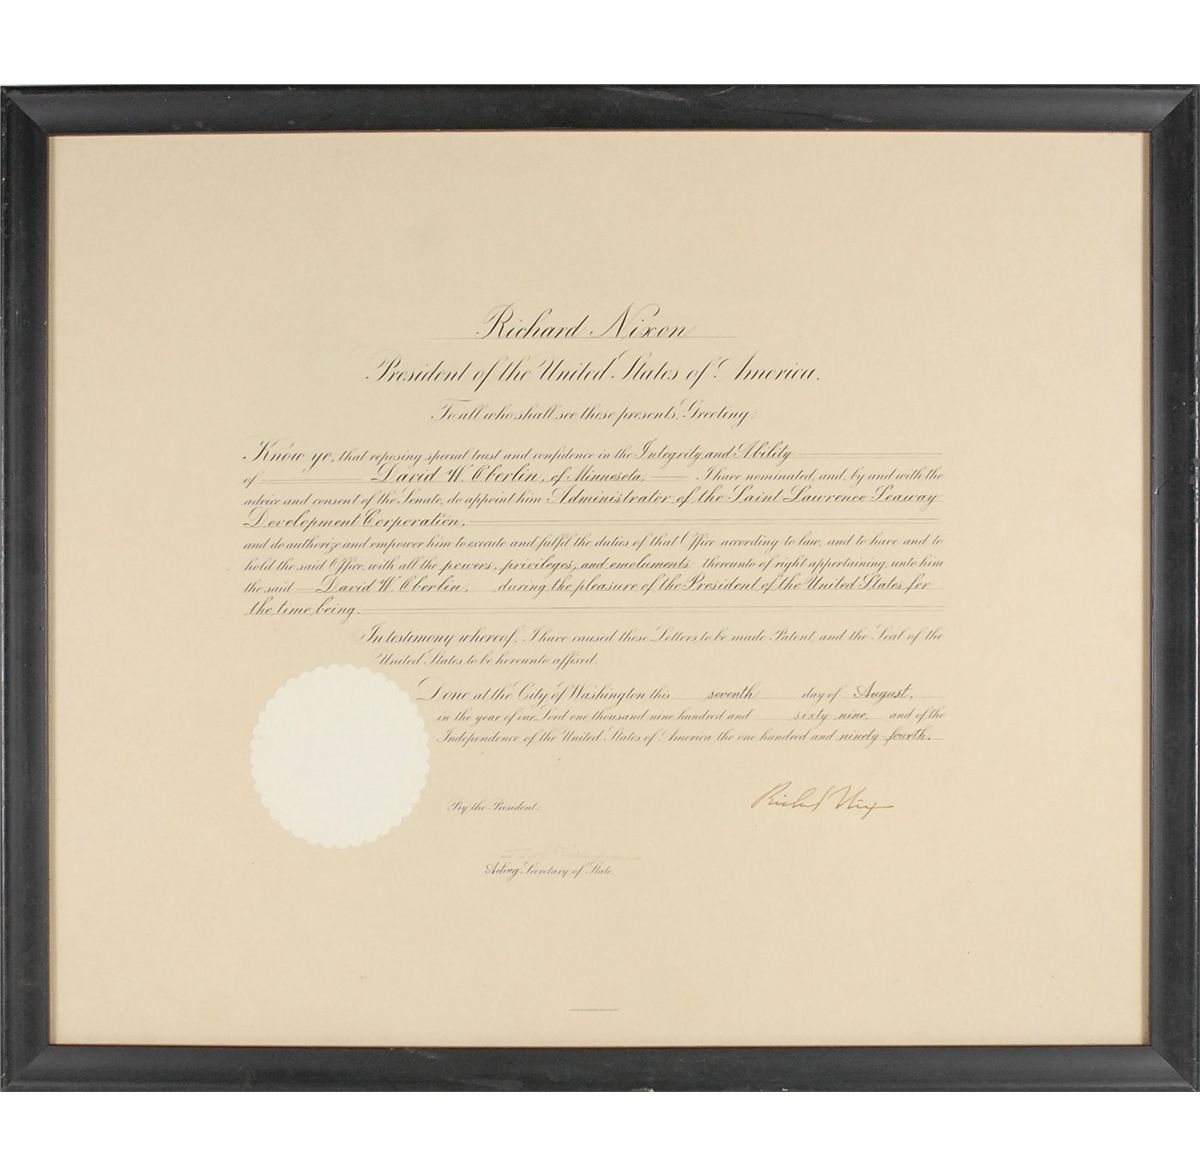 Richard Nixon
President of the United States of America.
To all who shall see these presents, Greeting:
Know ye, that reposing special trust and confidence in the Integrity and Ability
of David W. Oberlin, of Minnesota, I have nominated, and, by and with the
advice and consent of the Senate, do appoint him Administrator of the Saint Lawrence Seaway
Development Corporation,
and do authorize and empower him to execute and fulfil the duties of that Office according to law, and to have and to
hold the said Office, with all the powers, privileges, and emoluments thereunto of right appertaining, unto him
the said David W. Oberlin, during the pleasure of the President of the United States for
the time being.
In testimony whereof, I have caused these Letters to be made Patent, and the Seal of the
United States to be hereunto affixed.
Done at the City of Washington this seventh day of August,
in the year of our Lord one thousand nine hundred and sixty nine, and of the
Independence of the United States of America the one hundred and ninety fourth.
By the President:
Richard Nixon
Acting Secretary of State.